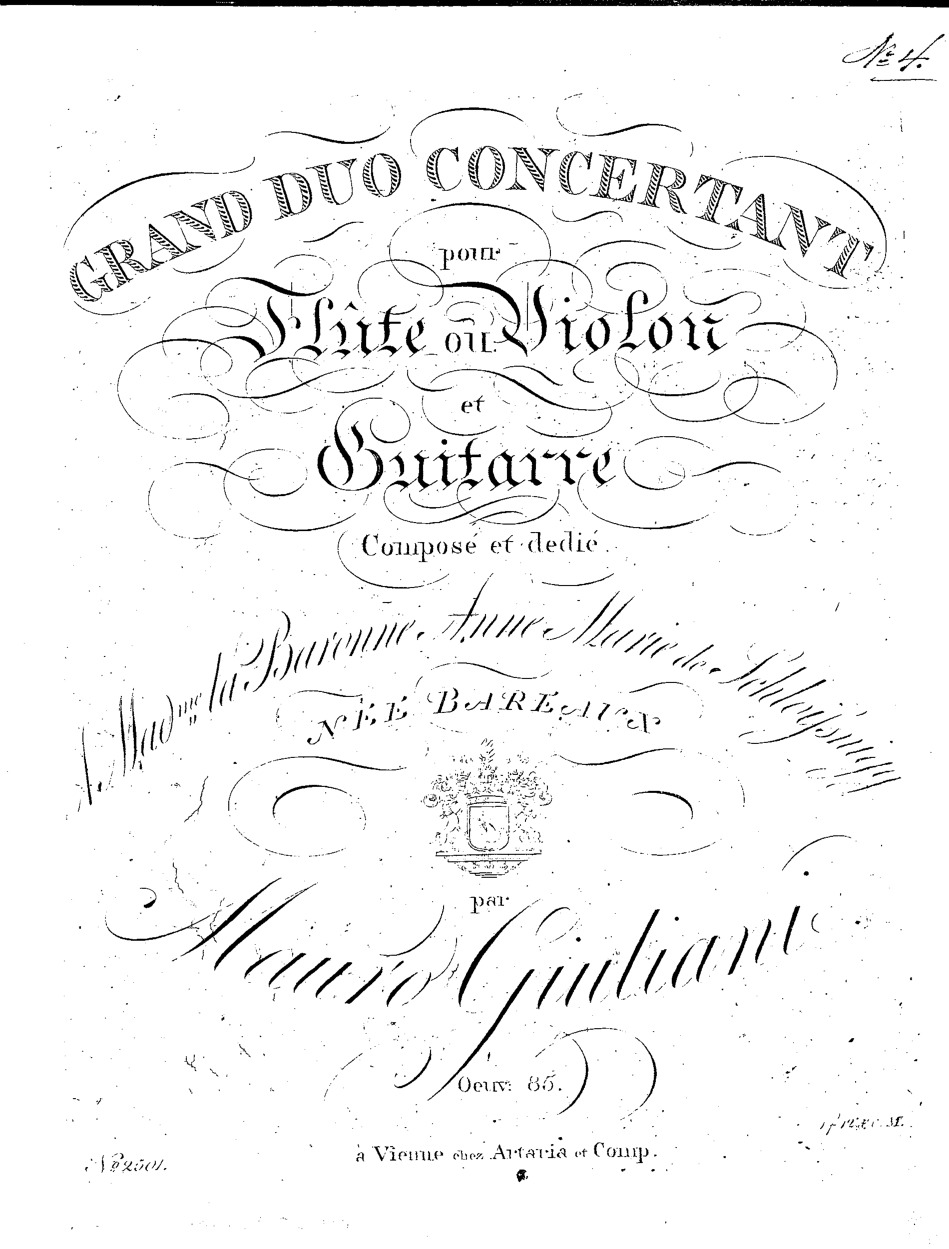 No. 4.
GRAND DUO CONCERTANT
pour
Flûte où Violon
et
Guitarre
Composé et dedié
A Madme la Baronne Anne Marie de Schloisnigg
NÉE BAREAUX
par
Mauro Giuliani
Oeuv: 85.
à Vienne chez Artaria et Comp.
No 2501.